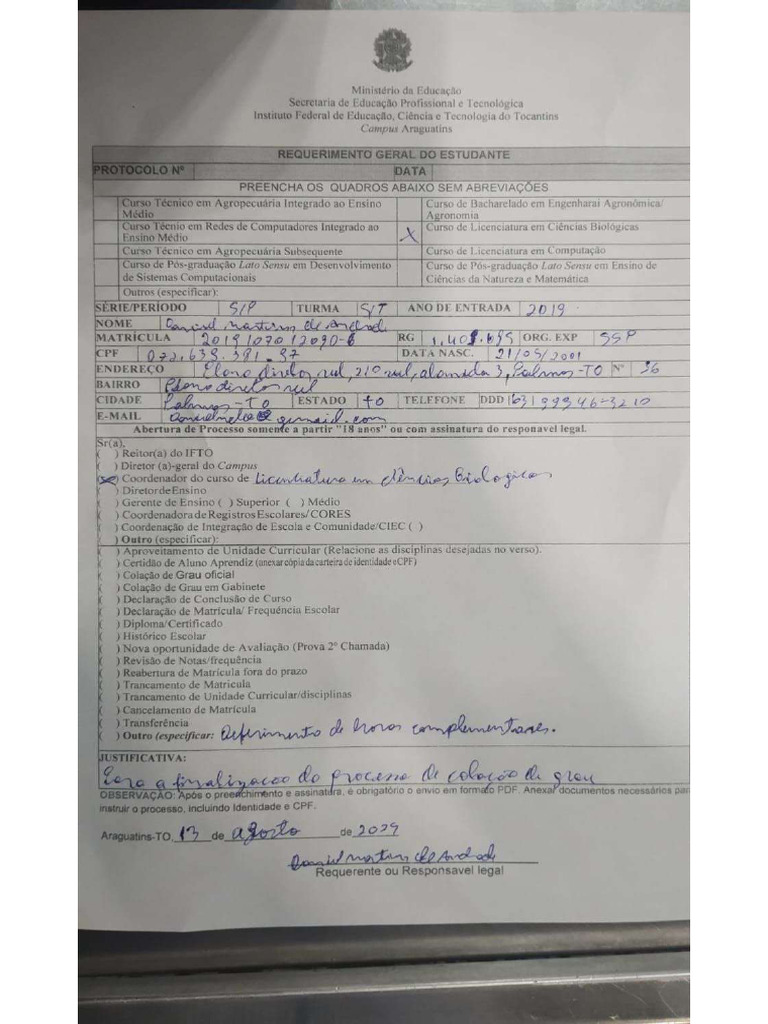 Ministério da Educação
Secretaria de Educação Profissional e Tecnológica
Instituto Federal de Educação, Ciência e Tecnologia do Tocantins
Campus Araguatins
REQUERIMENTO GERAL DO ESTUDANTE
PROTOCOLO Nº DATA
PREENCHA OS QUADROS ABAIXO SEM ABREVIAÇÕES
Curso Técnico em Agropecuária Integrado ao Ensino Médio
Curso de Bacharelado em Engenharai Agronômica/ Agronomia
Curso Técnio em Redes de Computadores Integrado ao Ensino Médio
X Curso de Licenciatura em Ciências Biológicas
Curso Técnico em Agropecuária Subsequente
Curso de Licenciatura em Computação
Curso de Pós-graduação Lato Sensu em Desenvolvimento de Sistemas Computacionais
Curso de Pós-graduação Lato Sensu em Ensino de Ciências da Natureza e Matemática
Outros (especificar):
SÉRIE/PERÍODO S/P TURMA S/T ANO DE ENTRADA 2019
NOME Daniel Martins de Andrade
MATRÍCULA RG ORG. EXP SSP
CPF DATA NASC. 21/05/2001
ENDEREÇO Plano diretor sul, 210 sul, alameda 3, Palmas-TO Nº 36
BAIRRO Plano diretor sul
CIDADE Palmas-TO ESTADO TO TELEFONE DDD (63) 99946-3210
E-MAIL @gmail.com
Abertura de Processo somente a partir "18 anos" ou com assinatura do responavel legal.
Sr(a).
( ) Reitor(a) do IFTO
( ) Diretor (a)-geral do Campus
(X) Coordenador do curso de Licenciatura em Ciências Biologicas
( ) Diretor de Ensino
( ) Gerente de Ensino ( ) Superior ( ) Médio
( ) Coordenadora de Registros Escolares/ CORES
( ) Coordenação de Integração de Escola e Comunidade/CIEC ( )
( ) Outro (especificar):
( ) Aproveitamento de Unidade Curricular (Relacione as disciplinas desejadas no verso).
( ) Certidão de Aluno Aprendiz (anexar cópia da carteira de identidade e CPF)
( ) Colação de Grau oficial
( ) Colação de Grau em Gabinete
( ) Declaração de Conclusão de Curso
( ) Declaração de Matrícula/ Frequência Escolar
( ) Diploma/Certificado
( ) Histórico Escolar
( ) Nova oportunidade de Avaliação (Prova 2º Chamada)
( ) Revisão de Notas/frequência
( ) Reabertura de Matrícula fora do prazo
( ) Trancamento de Matricula
( ) Trancamento de Unidade Curricular/disciplinas
( ) Cancelamento de Matrícula
( ) Transferência
( ) Outro (especificar: Deferimento de horas complementares.
JUSTIFICATIVA:
Para a finalização do processo de colação de grau
OBSERVAÇÃO: Após o preenchimento e assinatura, é obrigatório o envio em formato PDF. Anexar documentos necessários para
instruir o processo, incluindo Identidade e CPF.
Araguatins-TO, 13 de agosto de
Daniel Martins de Andrade
Requerente ou Responsavel legal